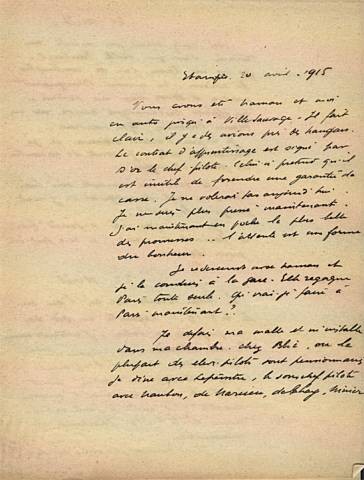 Etampes 20 avril 1915
Nous avons été maman et moi
en auto jusqu'à Villesauvage. Il fait
clair, il y a des avions près des hangars.
Le contrat d'apprentissage est signé par
le chef pilote. Celui-ci prétend qu'il
est inutile de prendre une garantie de
casse. Je ne volerai pas aujourd'hui
Je ne suis plus pressé maintenant.
J'ai maintenant en poche la plus belle
des promesses... l'attente est une forme
du bonheur.
Je redescends avec maman et
je la conduis à la gare. Elle regagne
Paris toute seule. Qu'irai-je faire à
Paris maintenant?
Je défais ma malle et m'installe
dans ma chambre chez où la
plupart des élèves pilotes sont pensionnaires
je dîne avec le sous chef pilote
avec de